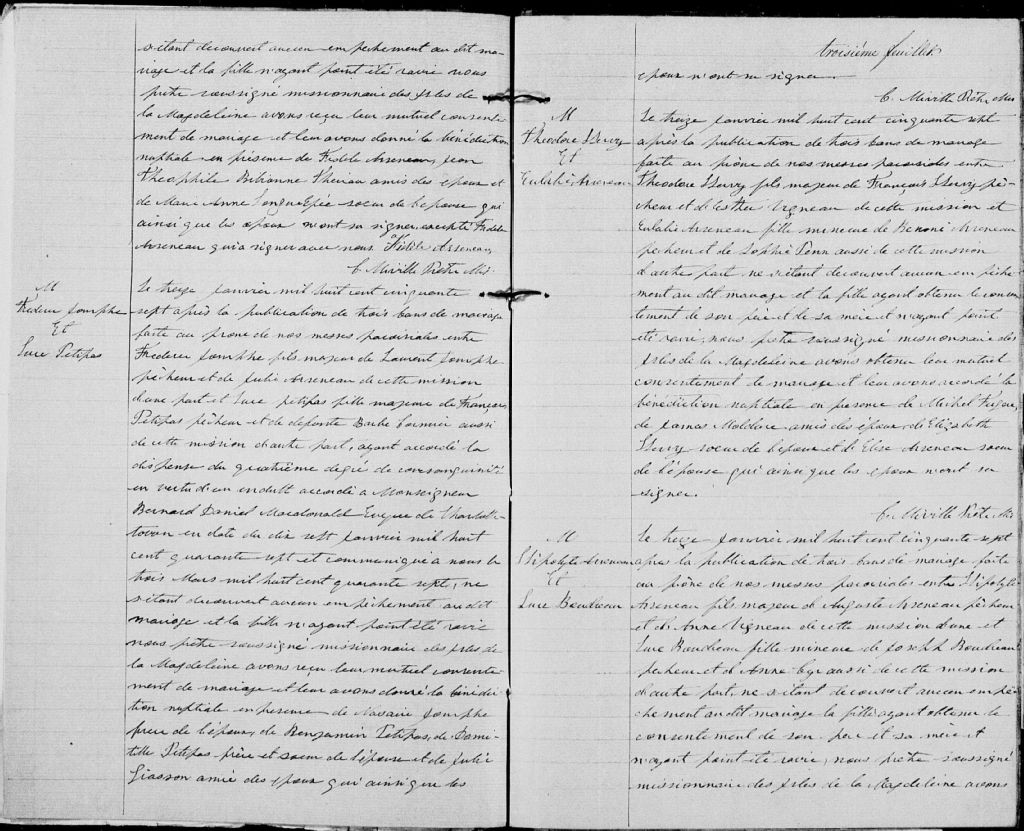 s'étant decouvert aucun empechement au dit ma-
riage et la fille n'ayant point été ravie nous
prêtre soussigné missionnaire des Isles de
la Magdeleine avons reçu leur mutuel consente
ment de mariage et leur avons donné la bénédiction
nuptiale en présence de Fidèle Arseneau, Jean
Theophile Thériau amis des epoux et
de Marie Anne Longuépée soeur de l'épouse qui
ainsi que les epoux n'ont su signer excepté Fidèle
Arseneau qui a signer avec nous. Fidèle Arseneau
C. Miville Prêtre Mis.
M
Frederic Jomphe
Et
Luce Petipas
Le treize janvier mil huit cent cinquante
sept après la publication de trois bans de mariage
faite au prone de nos messes paroissiales entre
Frederic Jomphe fils majeur de Laurent Jomphe
pêcheur et de Julie Arseneau de cette mission
d'une part et Luce petipas fille majeure de François
Petipas pêcheur et de défunte Barbe Cormier aussi
de cette mission d'autre part, ayant accordé la
dispense du quatrième degré de consanguinité
en vertu d'un indult accordé a Monseigneur
Bernard Daniel Macdonald Evêque de Charlotte
town en date du dix sept janvier mil huit
cent quarante sept et communiqué a nous le
trois Mars mil huit cent quarante sept, ne
s'étant decouvert aucun empêchement au dit
mariage et la fille n'ayant point été ravie
nous prêtre soussigné missionnaire des Isles de
la Magdeleine avons reçu leur mutuel consente
ment de mariage et leur avons donné la bénédic
tion nuptiale en présence de Nasaire Jomphe
frere de l'époux, de Benjamin Petipas, de Domi-
tille Petipas frère et soeur de l'épouse et de Julie
Giasson amie des epoux qui ainsi que les
troisième feuillet
epoux n'ont su signer.
C. Miville Prêtre Mis
M
Theodore Hervy
Et
Eulalie Arseneau
Le treize janvier mil huit cent cinquante sept
après la publication de trois bans de mariage
faite au prône de nos messes paroissiales entre
Theodore Hervy fils majeur de François Hervy pê-
cheur et de Esther Vigneau de cette mission et
Eulalie Arseneau fille mineure de Benoni Arseneau
pecheur et de Sophie Penn aussi de cette mission
d'autre part ne s'étant decouvert aucun empêche
ment au dit mariage et la fille ayant obtenu le consen
tement de son père et de sa mère et n'ayant point
été ravie, nous prêtre soussigné missionnaire des
Isles de la Magdeleine avons obtenu leur mutuel
consentement de mariage et leur avons accordé la
bénédiction nuptiale en présence de Michel
de James amis des époux, d'Elizabeth
Hervy soeur de l'époux et d'Elise Arseneau soeur
de l'épouse qui ainsi que les epoux n'ont su
signer.
C. Miville Prêtre Mis
M
Hipolyte Arseneau
Et
Luce Boudreau
Le treize janvier mil huit cent cinquante sept
apres la publication de trois bans de mariage faite
au prône de nos messes paroissiales entre Hipolyte
Arseneau fils majeur de Auguste Arseneau pêcheur
et de Anne Vigneau de cette mission d'une et
Luce Boudreau fille mineure de Joseph Boudreau
pecheur et d'Anne Cyr aussi de cette mission
d'autre part, ne s'étant decouvert aucun empê
chement au dit mariage la fille ayant obtenu le
consentement de son père et sa mère et
n'ayant point été ravie, nous prêtre soussigné
missionnaire des Isles de la Magdeleine avons